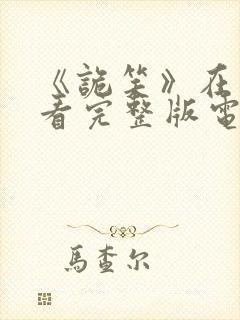 《詭笑》在
看完整版電
馬查尔